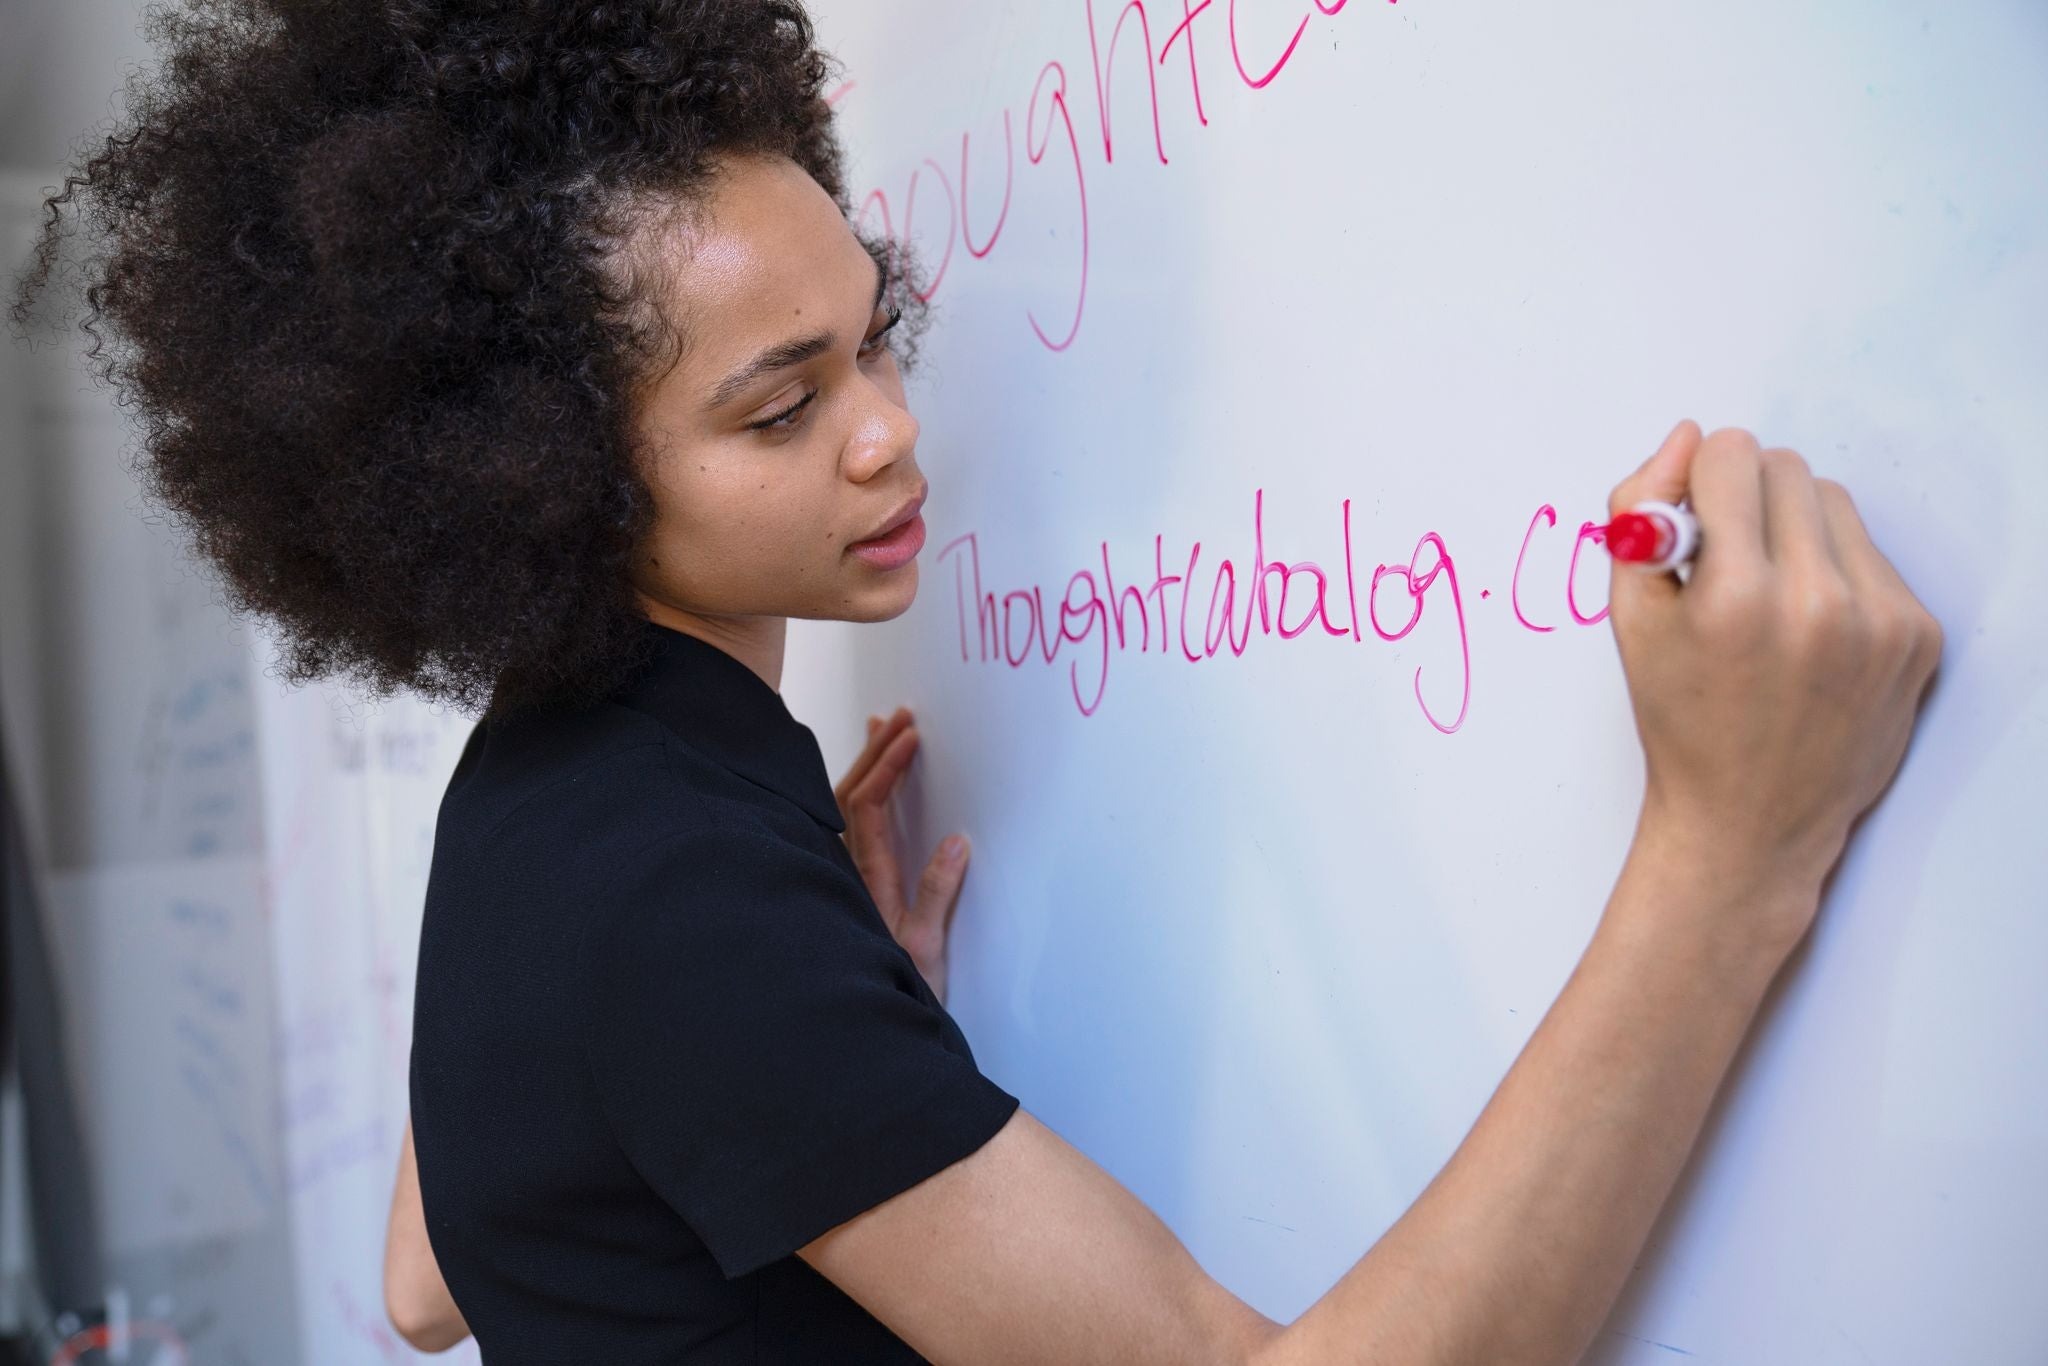 houghtCa
Thoughtcatalog.co